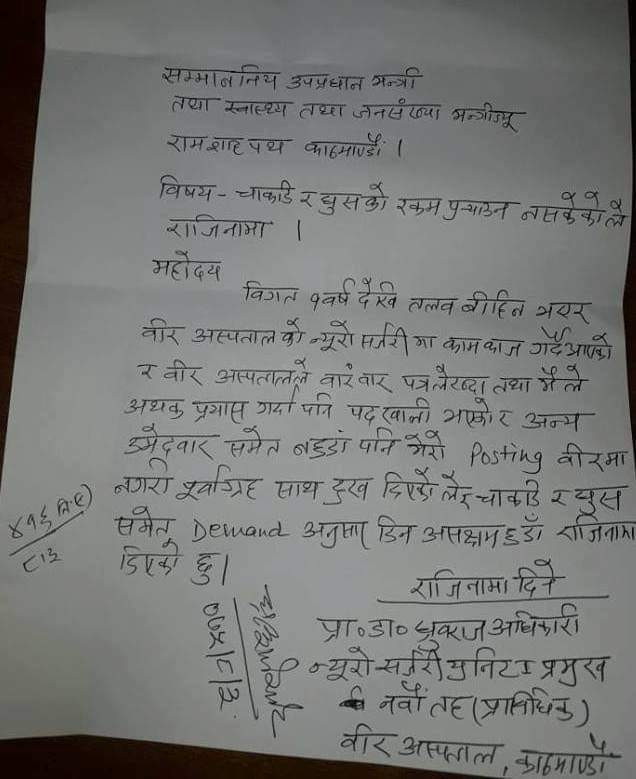 सम्माननिय उपप्रधान मन्त्री
तथा स्वास्थ्य तथा जनसंख्या मन्त्रीज्यू
रामशाह पथ काठमाण्डौं ।
विषय - चाकडि र घुसको रकम पुर्‍याउन नसकेकोले
राजिनामा ।
महोदय
विगत १ वर्ष देखि तलव बीहिन भएर
वीर अस्पतालको न्यूरो सर्जरी मा कामकाज गर्दै आएको
र वीर अस्पतालले वारंवार पत्र लेख्दा तथा मैले
अथक प्रयास गर्दा पनि पद खाली भएको र अन्य
उमेदवार समेत नहुदां पनि मेरो Posting वीरमा
नगरी पूर्वाग्रह साथ दुख दिएकोले र चाकडि र घुस
समेत Demand अनुसार दिन असक्षम हुदाँ राजिनामा
दिएको छु ।
राजिनामा दिने
प्रा० डा० ध्रुवराज अधिकारी
न्यूरो सर्जरी युनिट I प्रमुख
नवौं तह (प्राविधिक)
वीर अस्पताल, काठमाण्डौं